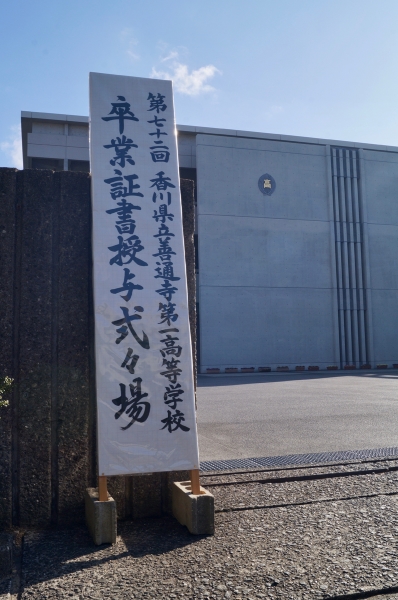 第七十二回 香川県立善通寺第一高等学校
卒業証書授与式々場
高